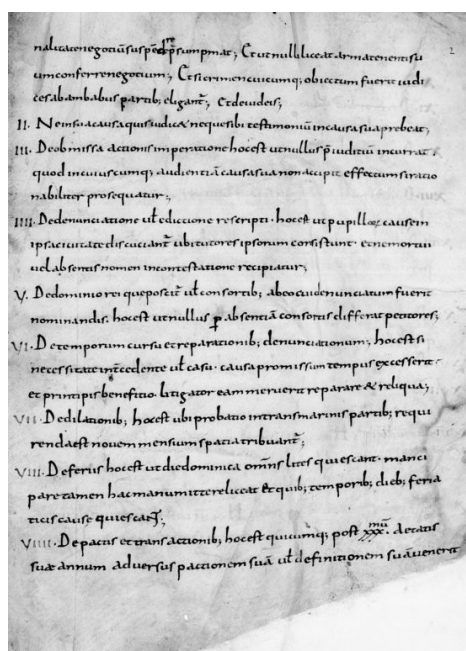 2
nalicatenegotiū suspēd p̄sumpmat; Et ut nulli liceat armatenentisu
umconferrenegotium; Et sicrimencuicumq; obiectum fuerit iudi
ces abambabus partib; eligant̄; Et deiudeis;
II. Neinsuacausaquisiudic& nequesibi testimoniū incausasuaprebeat;
III. Deobmissa actionis imperatione hocest utnullus p̄iuditiū incurrat
quod incuiuscumq; audientiā causasuanonaccipit effectumsiratio
nabiliter prosequatur;
IIII. Dedenuntiatione ut̄ edictione rescripti. hocest utpupilloꝝ causein
ipsaciuitatediscutiant̄ ubitutoresipsorum consistunt. etnemortui
uelabsentisnomen incontestatione recipiatur;
V. Dedominiorei quęposcit̄ ut̄ consortib; abeocuidenuntiatum fuerit
nominandis. hocest utnullus ꝑ absentiā consortis differat petitores;
VI. Detemporum cursu etreparationib; denuntiationum; hocestsi
necessitateint̄cedente ut̄ casu. causapromissum tempusexcesserit.
etprincipisbenefitio. litigator eammeruerit reparare & reliqua;
VII. Dedilationib; hocest ubi probatio intransmarinis partib; requi
rendaest nouemmensiumspatiatribuant̄;
VIII. Deferiis hocest utdiedominica om̄s lites quiescant. manci
paretamen hacmanumittereliceat Et quib; temporib; dieb; feria
ticis causę quiescant̄;
VIIII. Depactis ettransactionib; hocest quicumq; post xxx mū. aetatis
suae annum aduersus pactionemsuā ut̄ definitionem suāuenerit